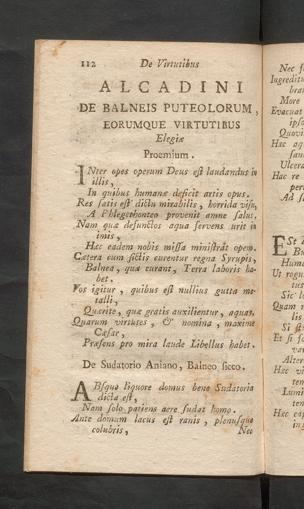 112 De Virtutibus
ALCADINI
DE BALNEIS PUTEOLORUM,
EORUMQUE VIRTUTIBUS
Elegiæ
Proemium.
INter opes operum Deus est laudandus in
illis,
In quibus humanæ deficit artis opus.
Res satis est dictu mirabilis, horrida visu,
A Phlegethonteo provenit amne salus.
Nam quæ defunctos aqua fervens urit in
imis,
Hæc eadem nobis missa ministrat opem.
Cætera cum sictis curentur regna Syrupis,
Balnea, quæ curant, Terra laboris ha-
bet.
Vos igitur, quibus est nullius gutta me-
talli,
Quærite, quæ gratis auxilientur, aquas.
Quarum virtutes, & nomina, maxime
Cæsar,
Præsens pro mira laude Libellus habet.
De Sudatorio Aniano, Balneo sicco.
ABsque liquore domus bene Sudatoria
dicta est,
Nam solo patiens aere sudat homo.
Ante domum lacus est ranis, plenusque
colubris,
Nec
Nec
Ingreditu
bra
More
Evacuat
ips
Quovi
Hæc aq
san
Ulcera
Hæc re
per
Ad s
ESt
B
Hum
Ut rogu
tus
Sic
Quam
lis
Si st
Et si
var
Alter
Hæc vi
ten
Lumi
ten
Hæc ca
ing